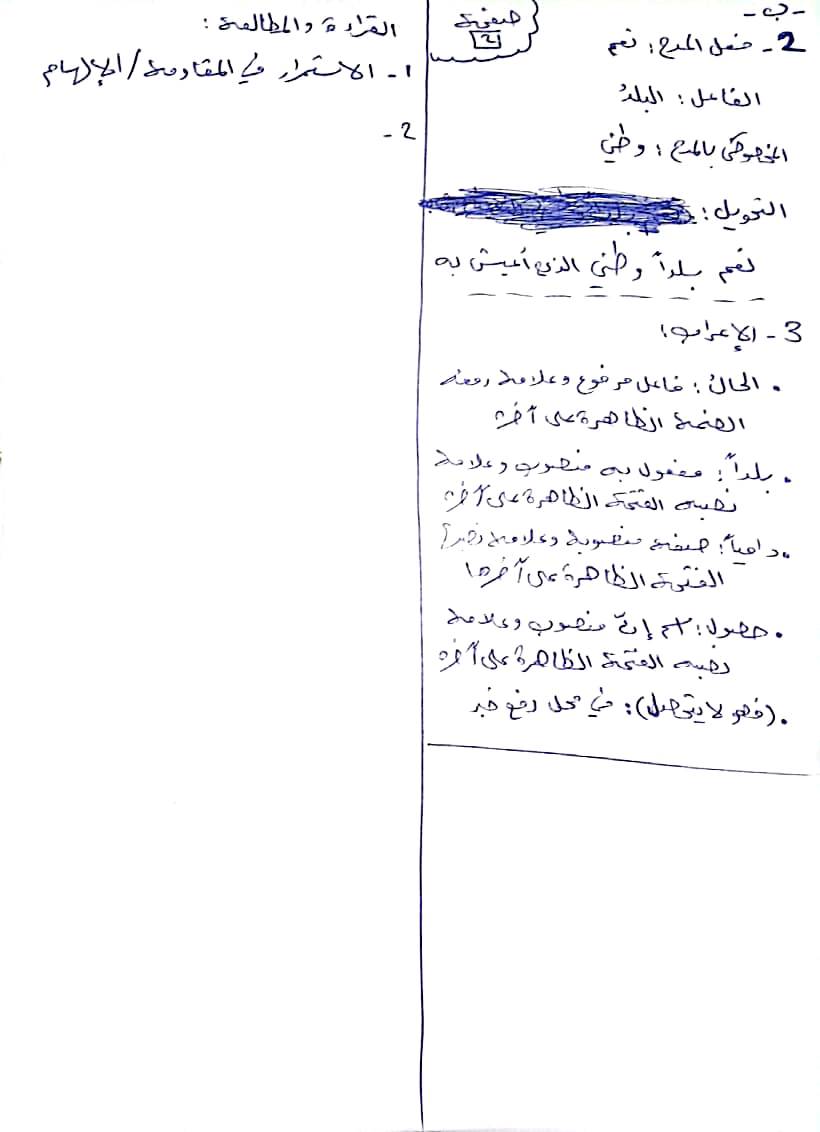 صفحة
2
-ب-
2- فعل المدح: نعم
الفاعل: البلدُ
المخصوص بالمدح: وطني
التحويل:
نعم بلداً وطني الذي أعيش به
3- الإعراب:
• الحالُ: فاعل مرفوع وعلامة رفعه
الضمة الظاهرة على آخره
• بلداً: مفعول به منصوب وعلامة
نصبه الفتحة الظاهرة على آخره
• دامياً: صفة منصوبة وعلامة نصبها
الفتحة الظاهرة على آخرها
• حصول: اسم إنّ منصوب وعلامة
نصبه الفتحة الظاهرة على آخره
• (فهو لا يتحصل): في محل رفع خبر
القراءة والمطالعة:
1- الاستمرار في المقاومة/الإلهام
2-